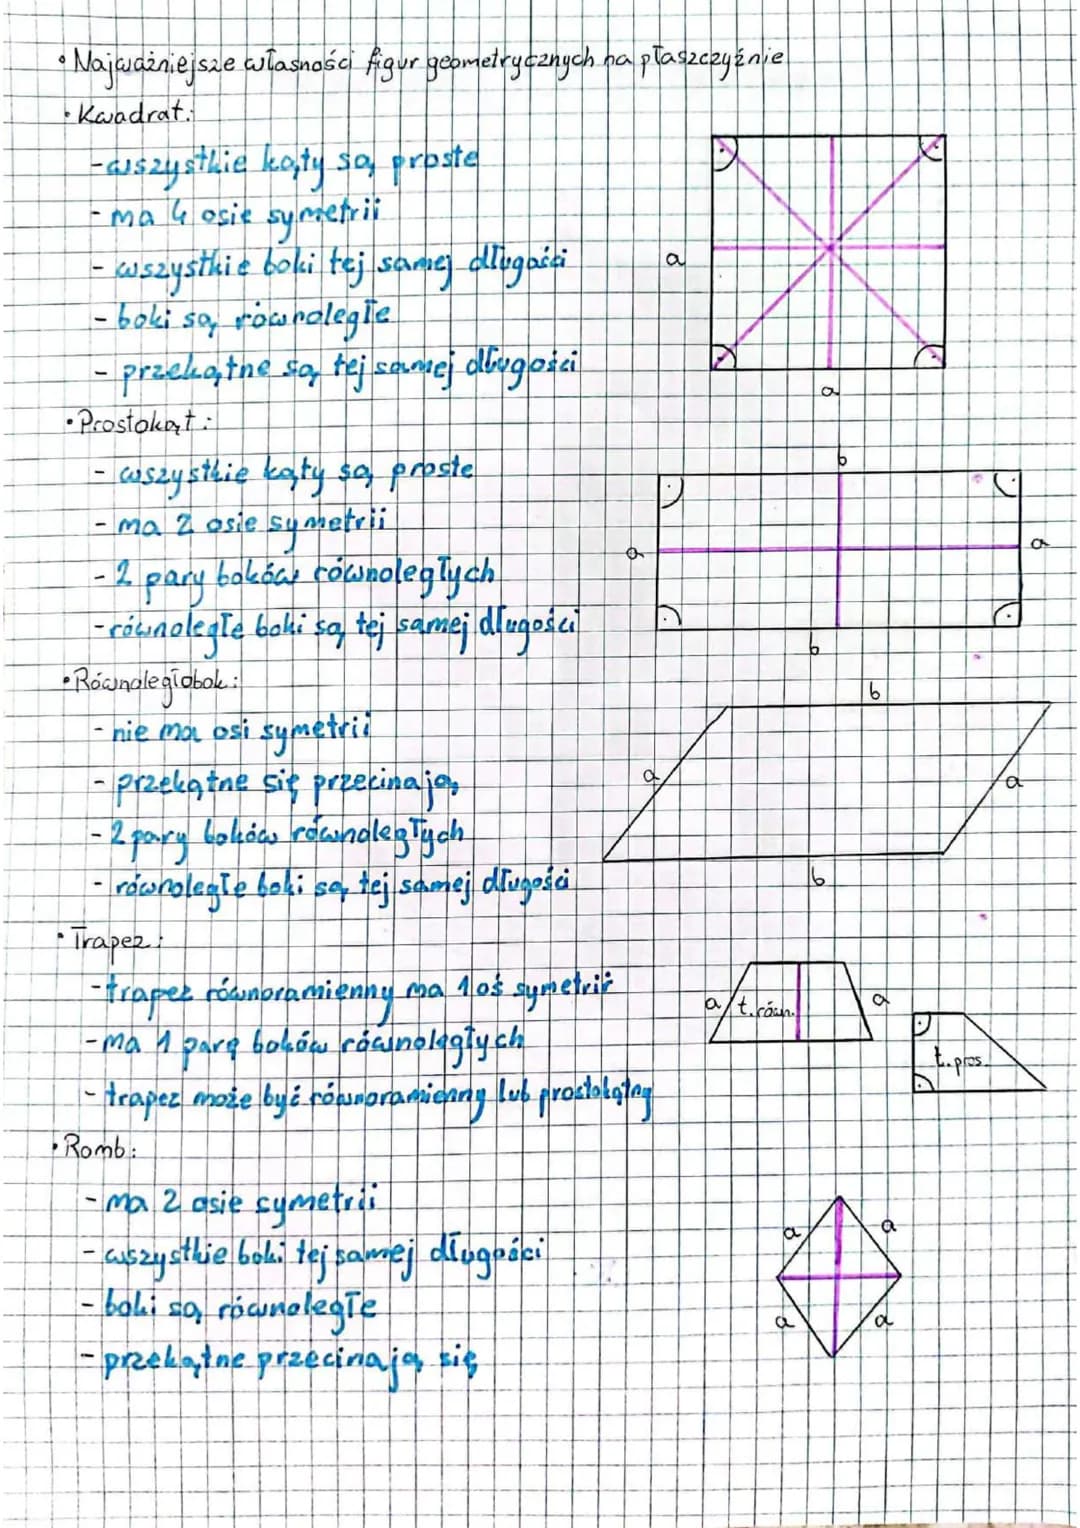 • Najważniejsze własności figur geometrycznych na płaszczyźnie
• Kwadrat:
- wszystkie kąty są proste
- ma 4 osie symetrii
- wszystkie boki tej samej długości
- boki są równoległe
- przekątne są tej samej długości
a
a
• Prostokąt:
- wszystkie kąty są proste
- ma 2 osie symetrii
- 2 pary boków równoległych
- równoległe boki są tej samej długości
b
a
a
b
• Równoległobok:
- nie ma osi symetrii
- przekątne się przecinają
- 2 pary boków równoległych
- równoległe boki są tej samej długości
b
a
a
b
• Trapez:
- trapez równoramienny ma 1 oś symetrii
- ma 1 parę boków równoległych
- trapez może być równoramienny lub prostokątny
a t. równ. a
t. pros.
• Romb:
- ma 2 osie symetrii
- wszystkie boki tej samej długości
- boki są równoległe
- przekątne przecinają się
a a
a a